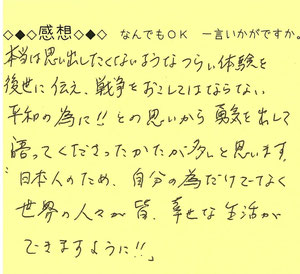 ◇◆◇感想◇◆◇ なんでもOK 一言いかがですか。
本当は思い出したくないようなつらい体験を
後世に伝え、戦争をおこしてはならない
平和の為に!! との思いから 勇気を出して
語ってくださったかたが多いと思います。
"日本人のため、自分の為だけでなく
世界の人々が皆、幸せな生活が
できますように!!」